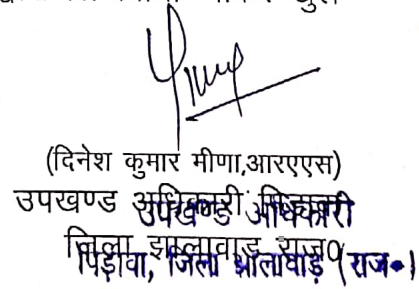 (दिनेश कुमार मीणा,आरएएस)
उपखण्ड अधिकारी पिडावा
जिला झालावाड़ राज०
उपखण्ड अधिकारी
पिड़ावा, जिला झालावाड़ (राज०)